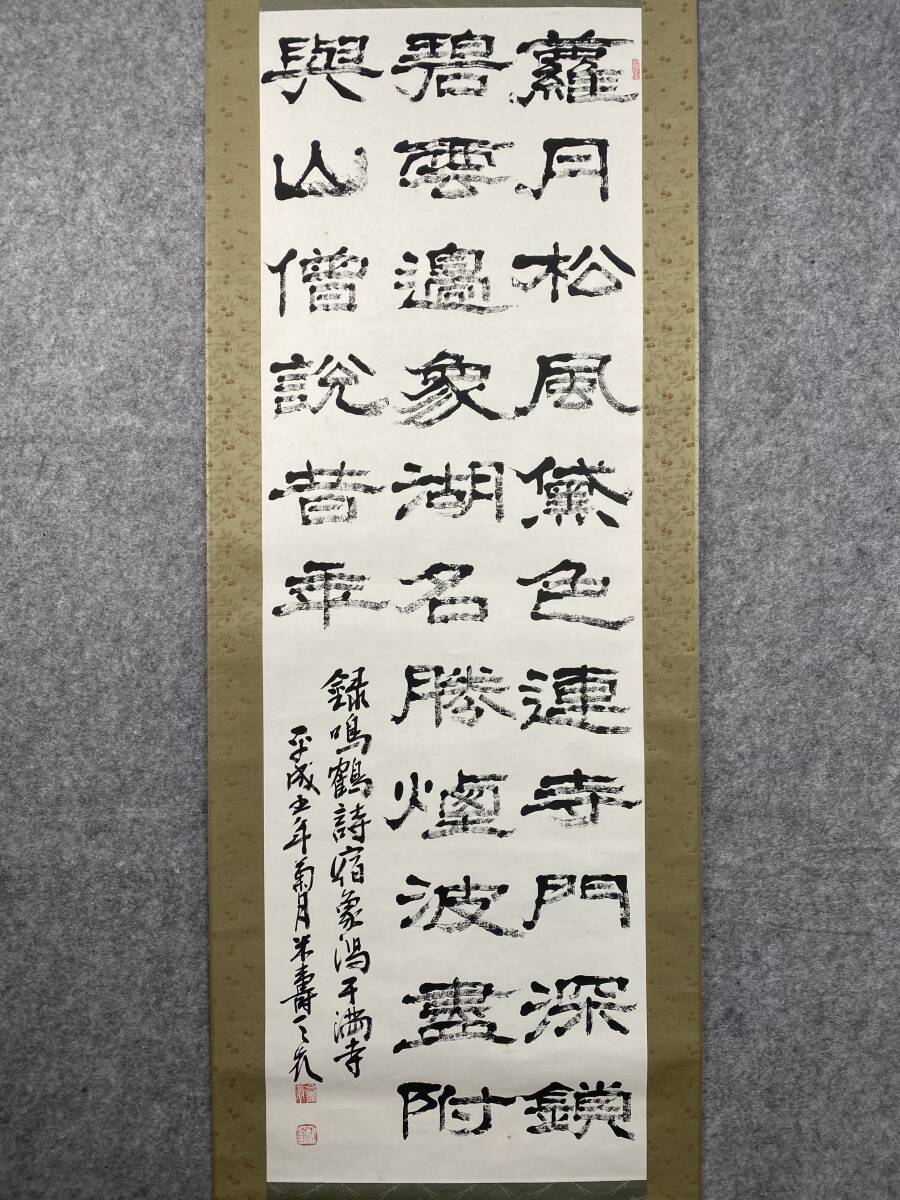 蘿月松風黛色連寺門深鎖
碧雲邊象湖名勝煙波盡附
與山僧說昔年
録鳴鶴詩宿象潟干満寺
平成五年菊月米壽